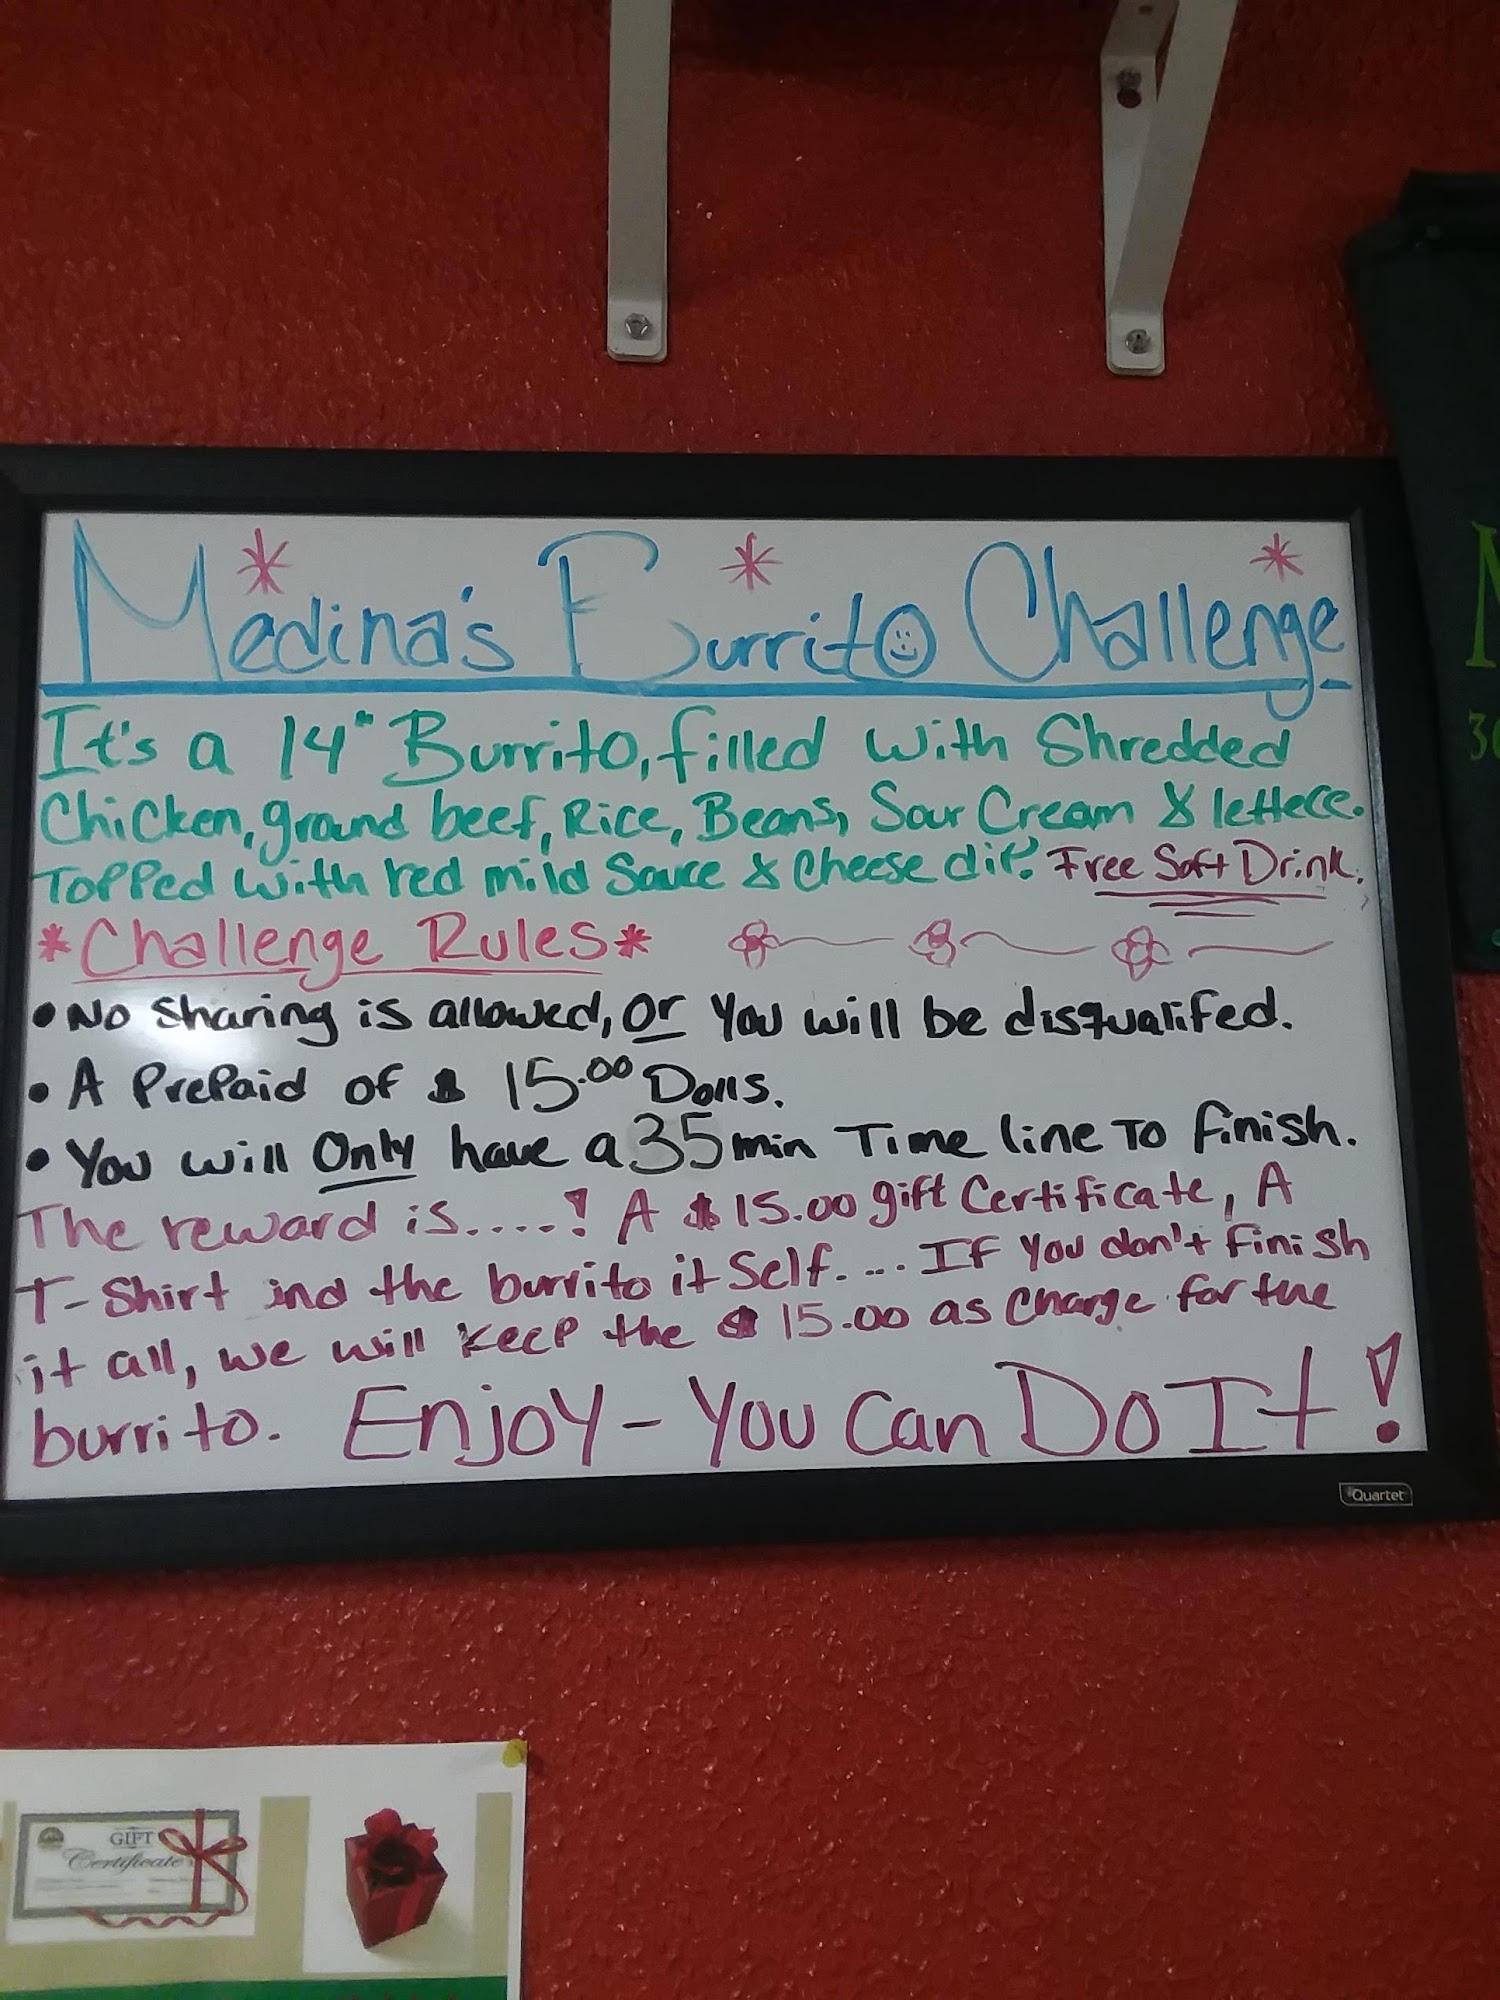 Medina's Burrito Challenge
It's a 14" Burrito, filled with Shredded
Chicken, ground beef, Rice, Beans, Sour Cream & lettece.
Topped with red mild Sauce & Cheese dip. Free Soft Drink.
*Challenge Rules*
• No Sharing is allowed, or You will be disqualifed.
• A Prepaid of $ 15.00 Dolls.
• You will Only have a 35 min Time line To finish.
The reward is....! A $15.00 gift Certificate, A
T-Shirt and the burrito it Self.... If you don't finish
it all, we will keep the $15.00 as Charge for the
burrito. Enjoy - You Can Do It!
Quartet
GIFT
Certificate